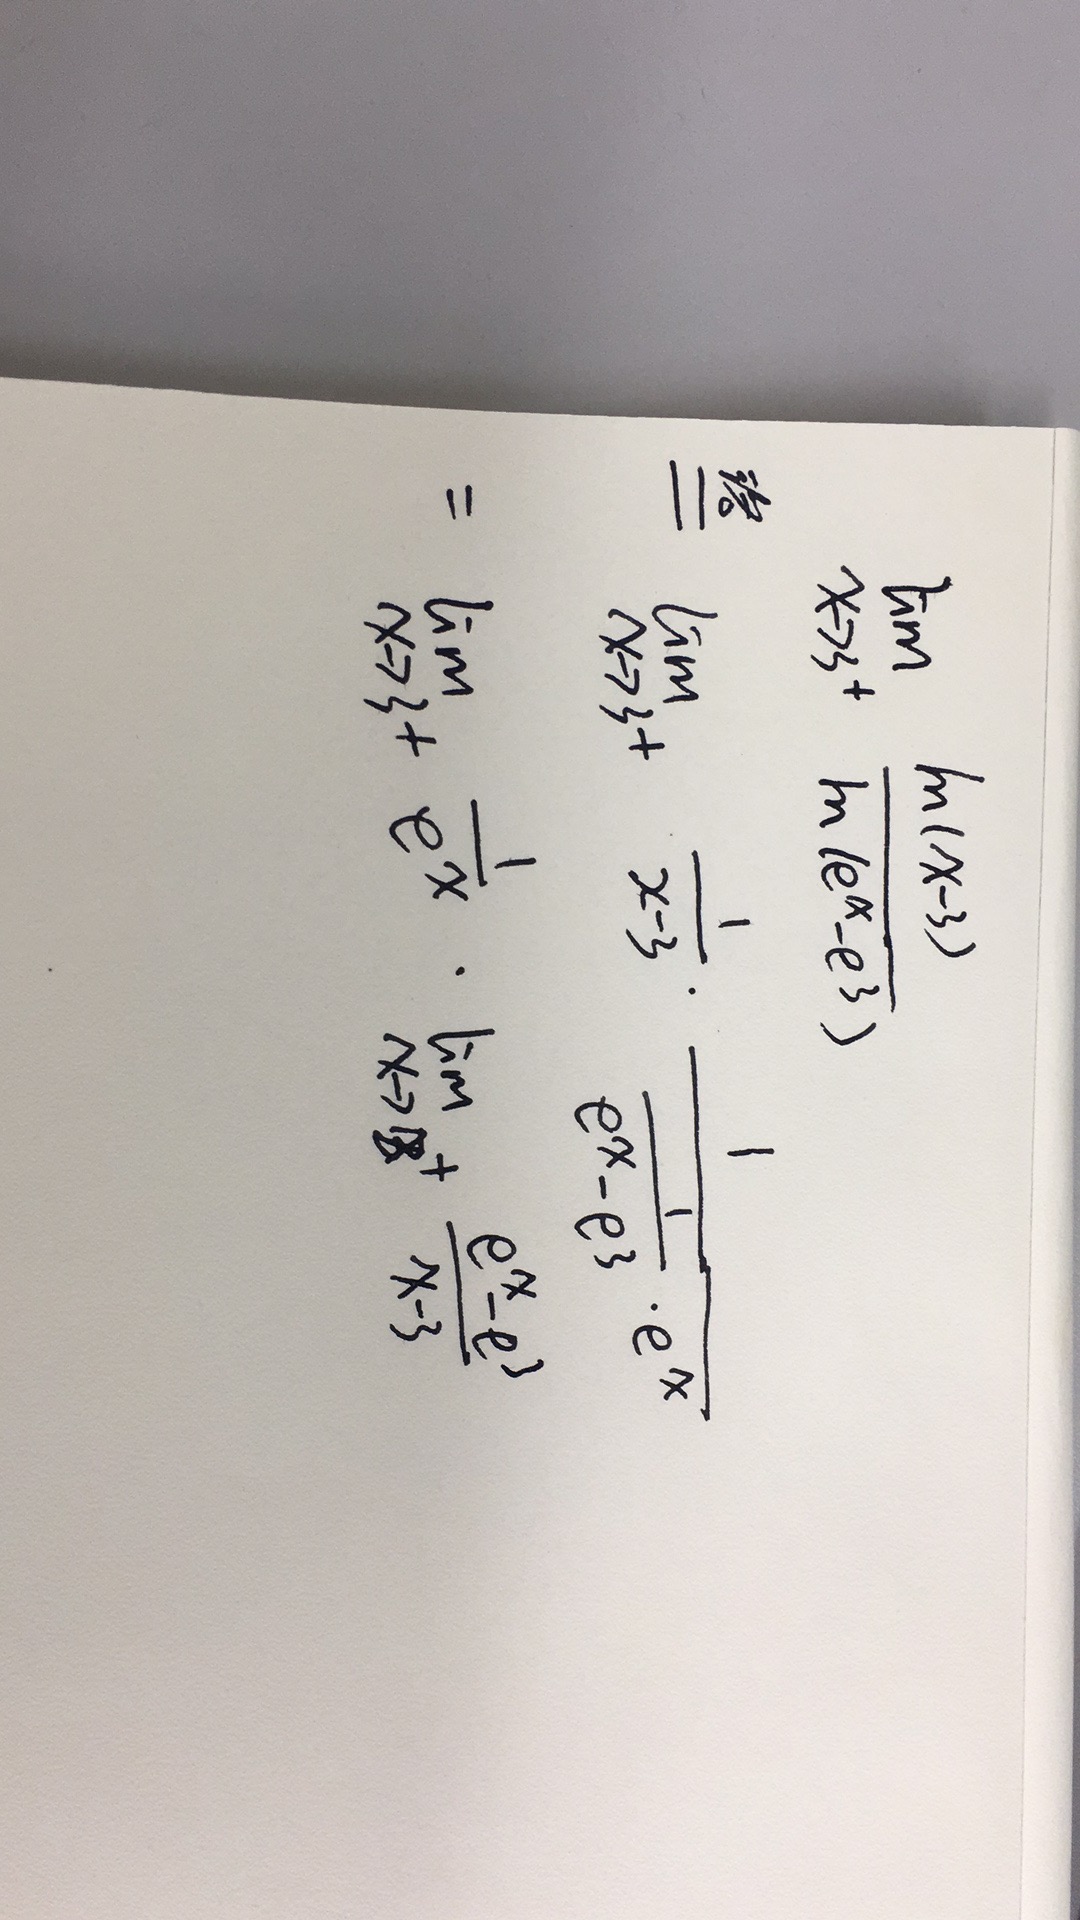 lim x→3⁺ ln(x-3) / ln(eˣ-e³)
洛 = lim x→3⁺ 1/(x-3) · 1/(1/(eˣ-e³) · eˣ)
= lim x→3⁺ 1/eˣ · lim x→3⁺ (eˣ-e³)/(x-3)